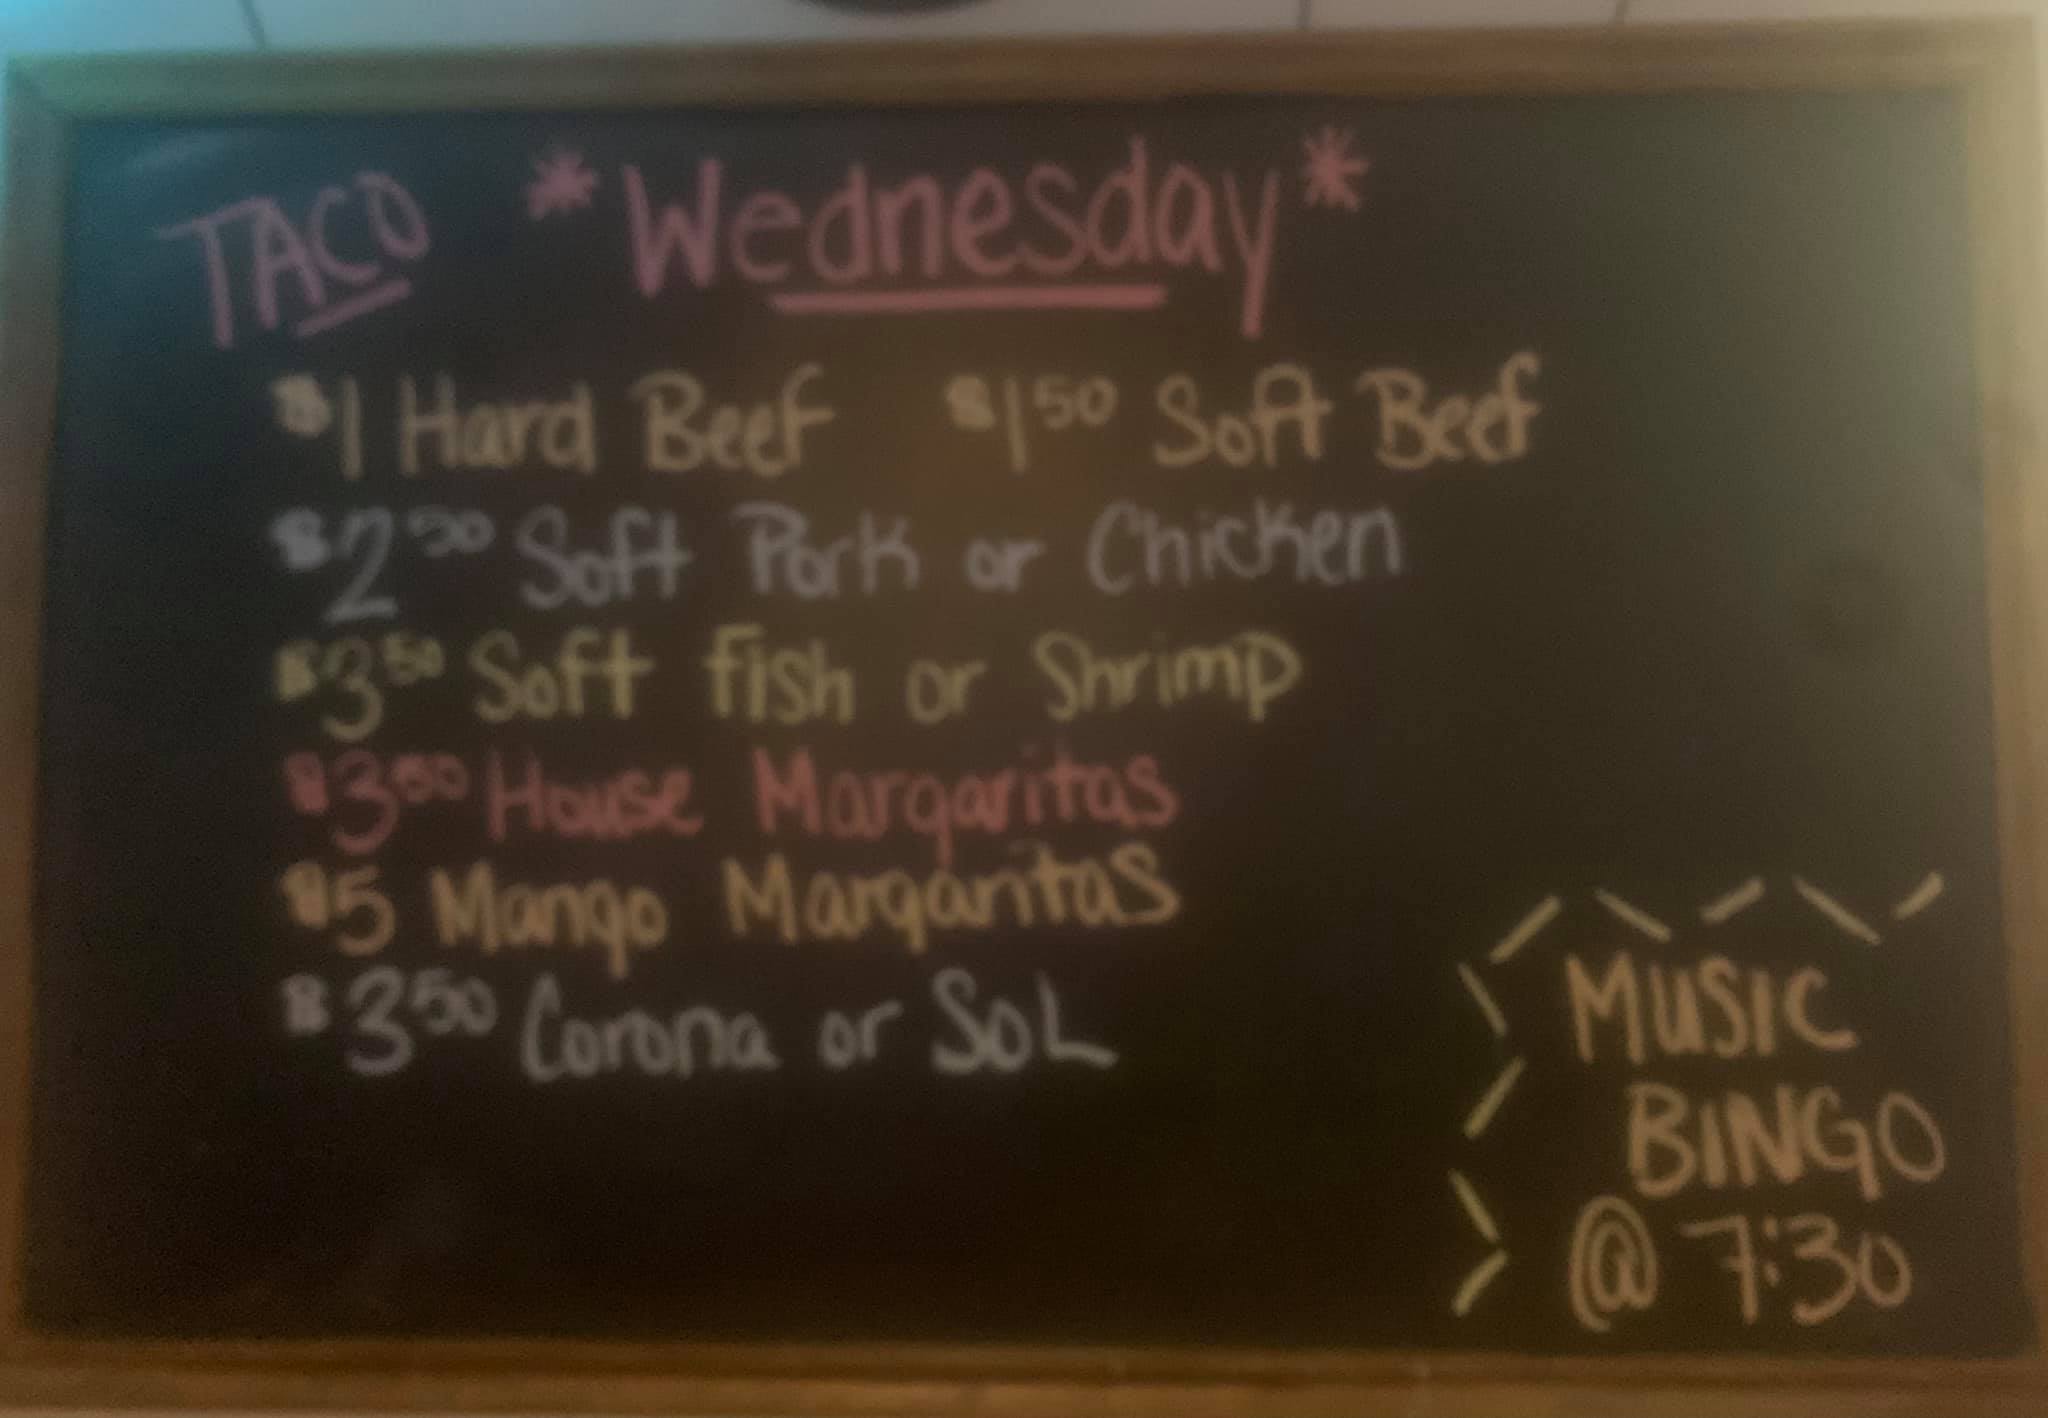 TACO *Wednesday*
$1 Hard Beef $1.50 Soft Beef
$2.50 Soft Pork or Chicken
$3.50 Soft Fish or Shrimp
$3.50 House Margaritas
$5 Mango Margaritas
$3.50 Corona or SoL
MUSIC
BINGO
@ 7:30